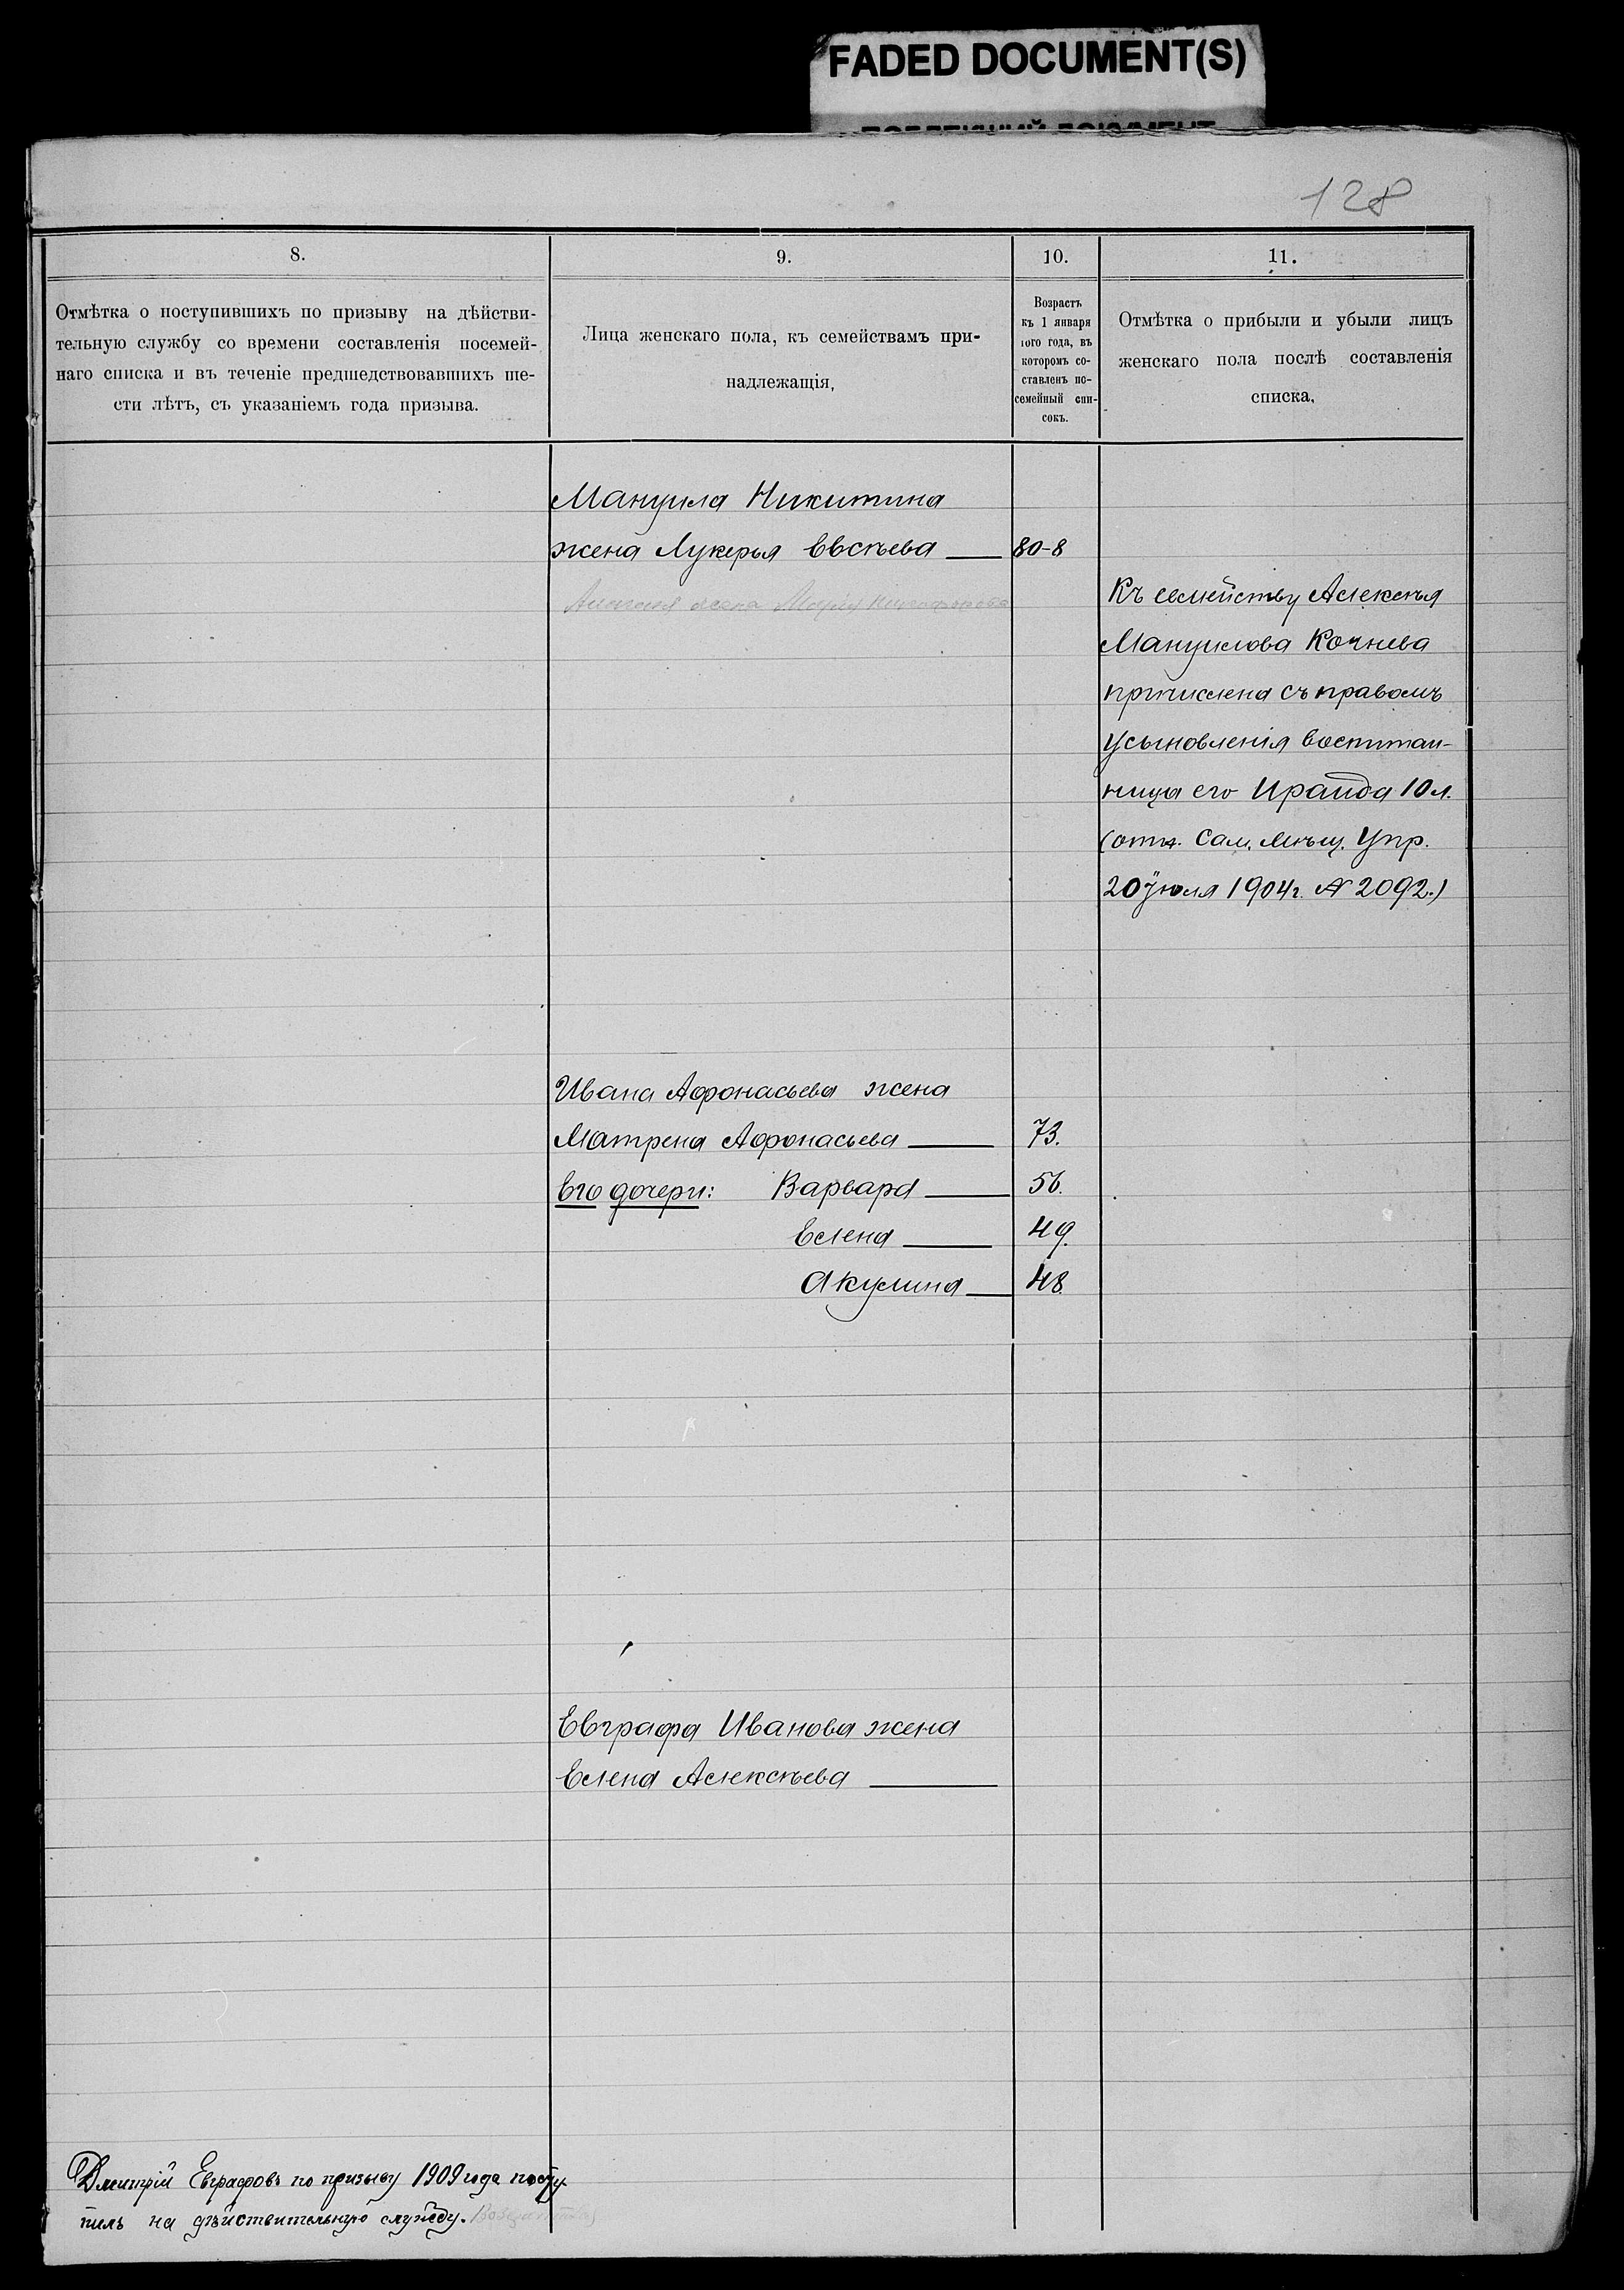 FADED DOCUMENT(S)
128
8.
9.
10.
11.
Отмѣтка о поступившихъ по призыву на дѣйстви-
тельную службу со времени составленія посемей-
наго списка и въ теченіе предшедствовавшихъ ше-
сти лѣтъ, съ указаніемъ года призыва.
Лица женскаго пола, къ семействамъ при-
надлежащія,
Возрастъ
къ 1 января
того года, въ
которомъ со-
ставленъ по-
семейный спи-
сокъ.
Отмѣтка о прибыли и убыли лицъ
женскаго пола послѣ составленія
списка.
Мануила Никитина
жена Лукерья Евсѣева — 80-8
жена Марія
Къ семейству Алексѣя
Мануилова Кочнева
причислена съ правомъ
усыновленія воспитан-
ница его Ираида 10 л.
(отн. Сам. Мѣщ. Упр.
20 Іюля 1904 г. № 2092.)
Ивана Афонасьева жена
Матрена Афонасьева — 73.
Его дочери: Варвара — 56.
Елена — 49.
Акулина — 48.
Евграфа Иванова жена
Елена Алексѣева —
Дмитрій Евграфовъ по призыву 1909 года посту-
пилъ на дѣйствительную службу.